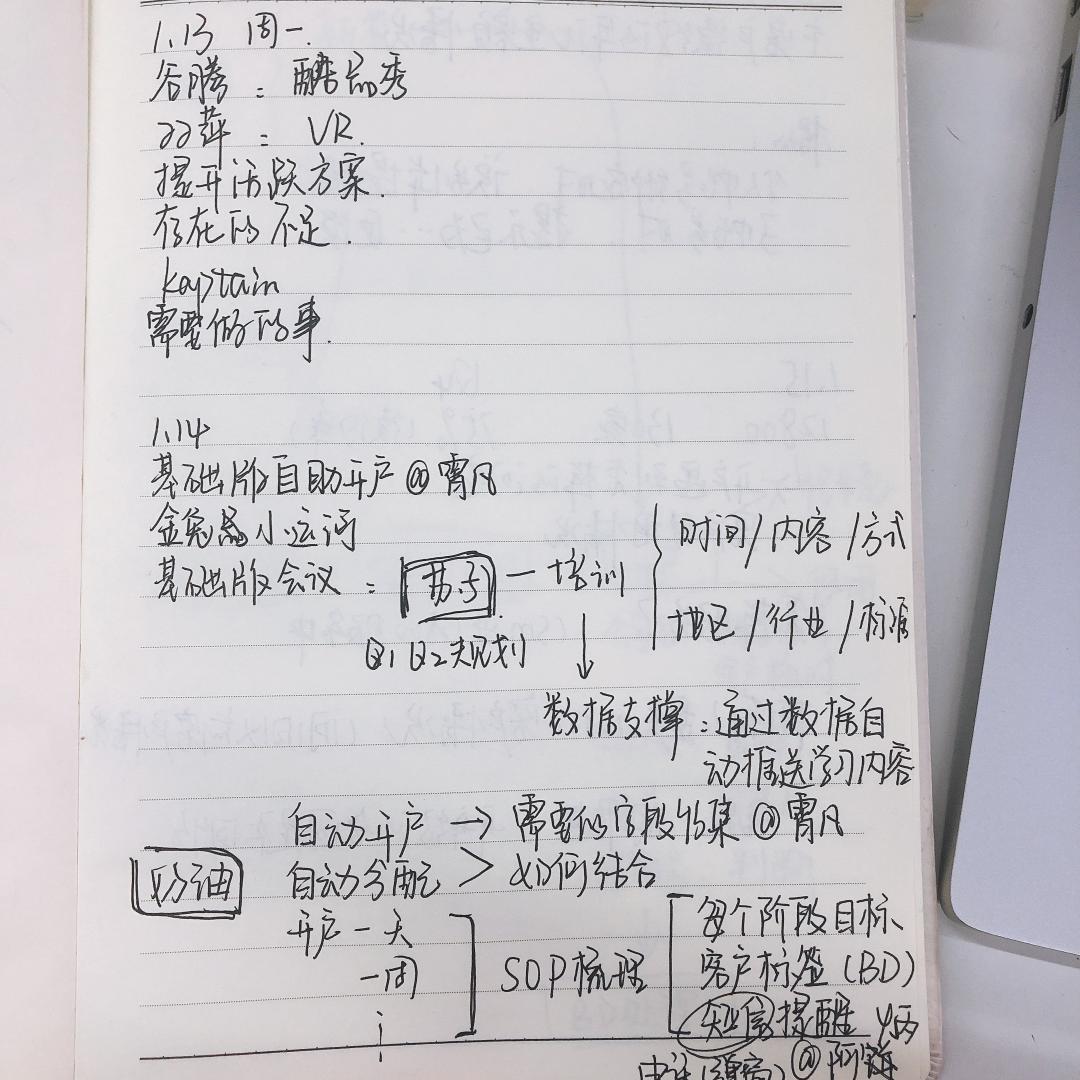 1.13 周一.
谷腾：醋品秀
双萍：VR.
提升活跃方案.
存在的不足.
kaptain
需要做的事.
1.14
基础版自助开户 @霄凡
金兔 小运河
基础版会议：苏子 — 培训
时间/内容/方式
地区/行业/标准
Q1 Q2规划
数据支撑：通过数据自
动推送学习内容
自动开户 → 需要的字段收集 @霄凡
自动分配 > 如何结合
奶油
开户一天
一周
SOP梳理
每个阶段目标
客户标签(BD)
短信提醒
@阿